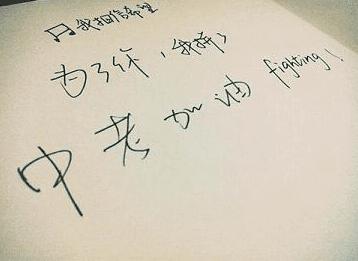 我相信希望
为了你，我拼了
中考加油 fighting!